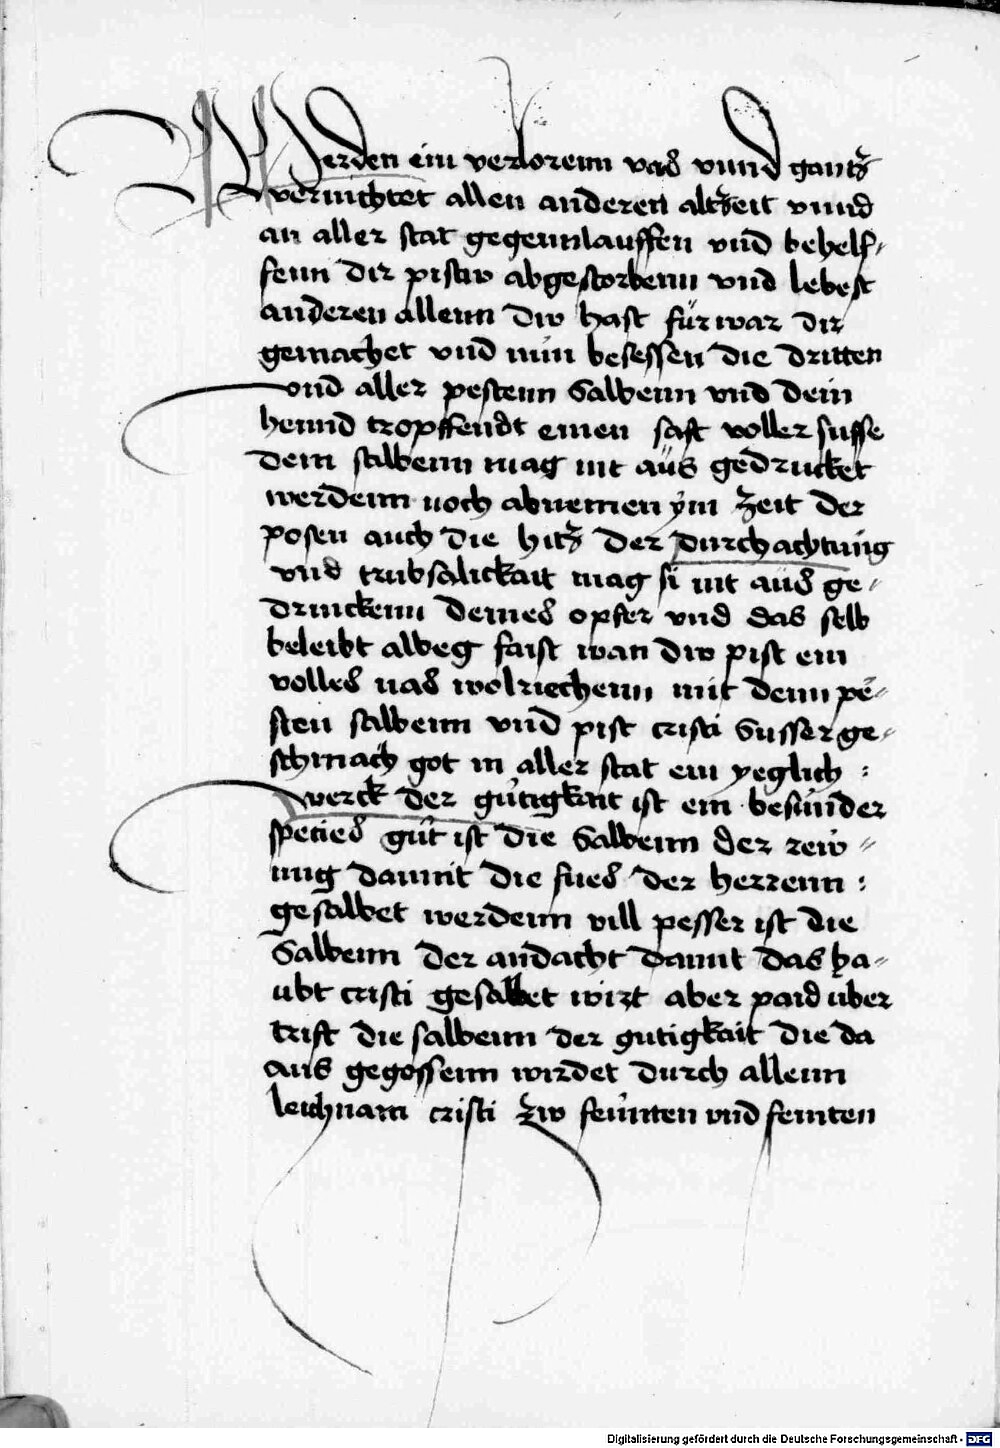 Werden ein verlorenn vas vnnd gantz
vernichtet allen anderen altzeit vnnd
an aller stat gegennlauffen vnd behelf-
fenn dir pistw abgestorbenn vnd lebest
anderen allenn dw hast fürwar dir
gemachet vnd nün besessen die dritten
vnd aller pestenn Salbenn vnd dein
hennd tropffendt einen saft voller susse
dem salbenn mag nit aüs gedrucket
werdenn noch abnemen ÿm zeit der
posen auch die hitz der durchachtung
vnd trubsalickait mag si nit aüs ge-
drucken deines opfer vnd das selb
beleibt albeg faist wan dw pist ein
volles vas wolriechenn mit denn pe-
sten salbenn vnd pist cristi Susser ge-
schmach got in aller stat ein yeglich
werck der gütigkait ist ein besunder
species güt ist die Salbenn der rew-
ung damit die fues der herrenn
gesalbet werdenn vill pesser ist die
Salbenn der andacht damit das ha-
ubt cristi gesalbet wirt aber paid uber
trift die salbenn der gutigkait die da
aus gegossenn wirdet durch allenn
leichnam cristi zw feünten vnd feinten
Digitalisierung gefördert durch die Deutsche Forschungsgemeinschaft - DFG